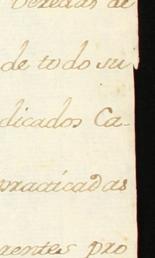 Veredas de
de todo su
dicados Ca-
practicadas
rentes pro